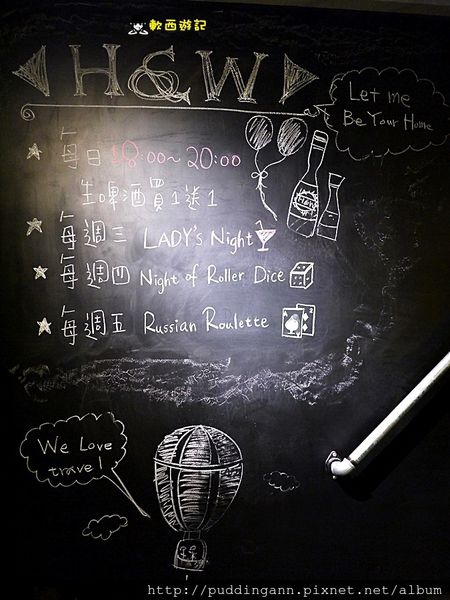 軟西遊記
H&W
Let me
Be Your Home
每日 18:00~20:00
生啤酒買1送1
每週三 LADY's Night
每週四 Night of Roller Dice
每週五 Russian Roulette
We Love
travel
http://puddingann.pixnet.net/album